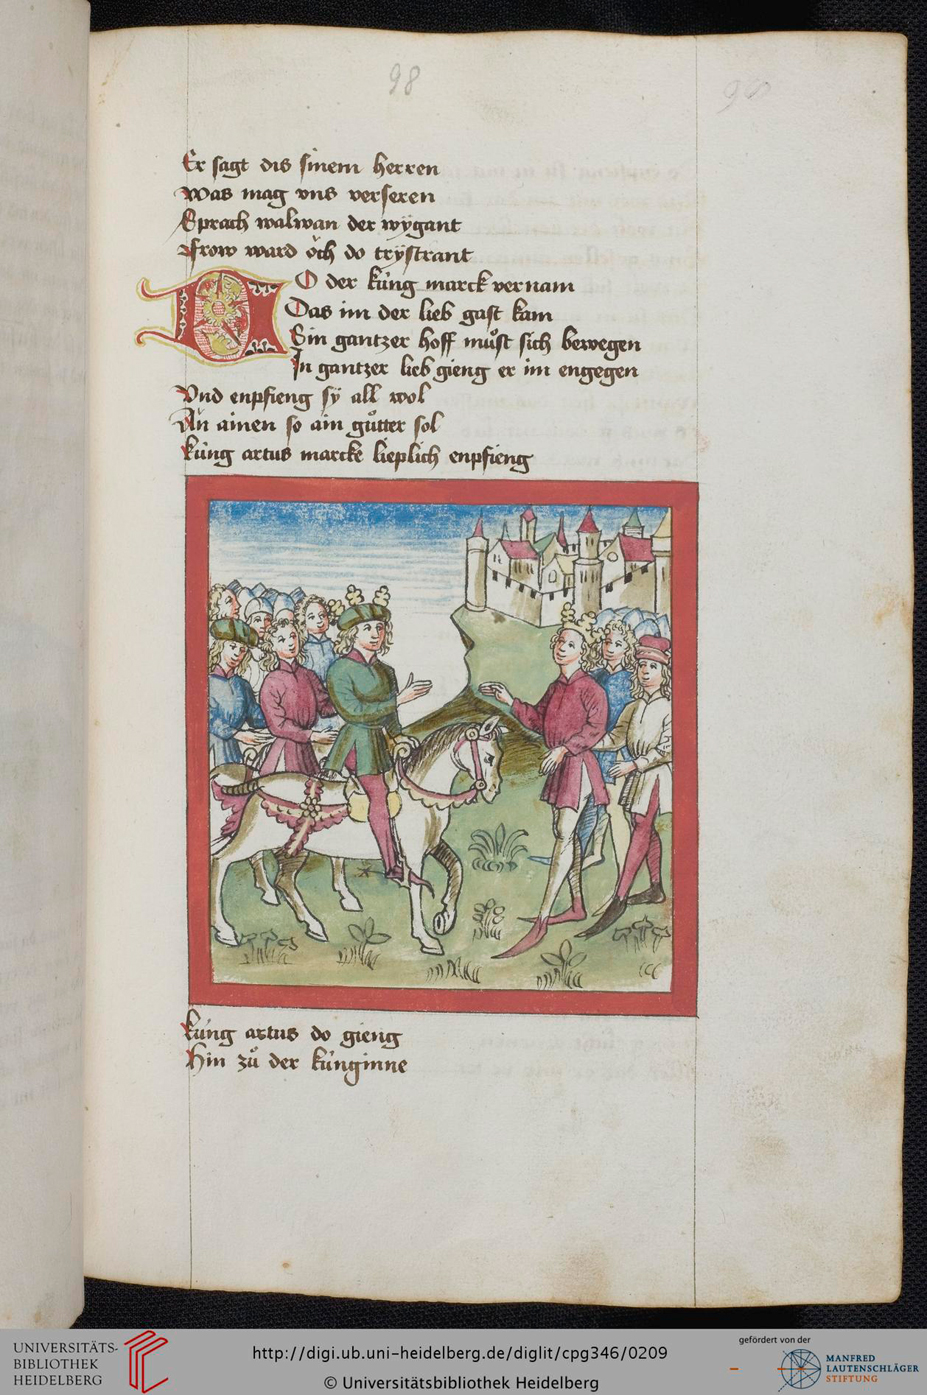 98
90
Er sagt dis sinem herren
Was mag vns verseren
Sprach walwan der wÿgant
Frow ward och do trÿstrant
DO der kúng marck vernam
Das im der lieb gast kam
Sin gantzer hoff můst sich bewegen
In gantzer lieb gieng er im engegen
Vnd enpfieng sÿ all wol
Án ainen so ain gůtter sol
kúng artus marcke lieplich enpfieng
kúng artus do gieng
Hin zů der kúnginne
UNIVERSITÄTS-
BIBLIOTHEK
HEIDELBERG
http://digi.ub.uni-heidelberg.de/diglit/cpg346/0209
© Universitätsbibliothek Heidelberg
gefördert von der
MANFRED
LAUTENSCHLÄGER
STIFTUNG